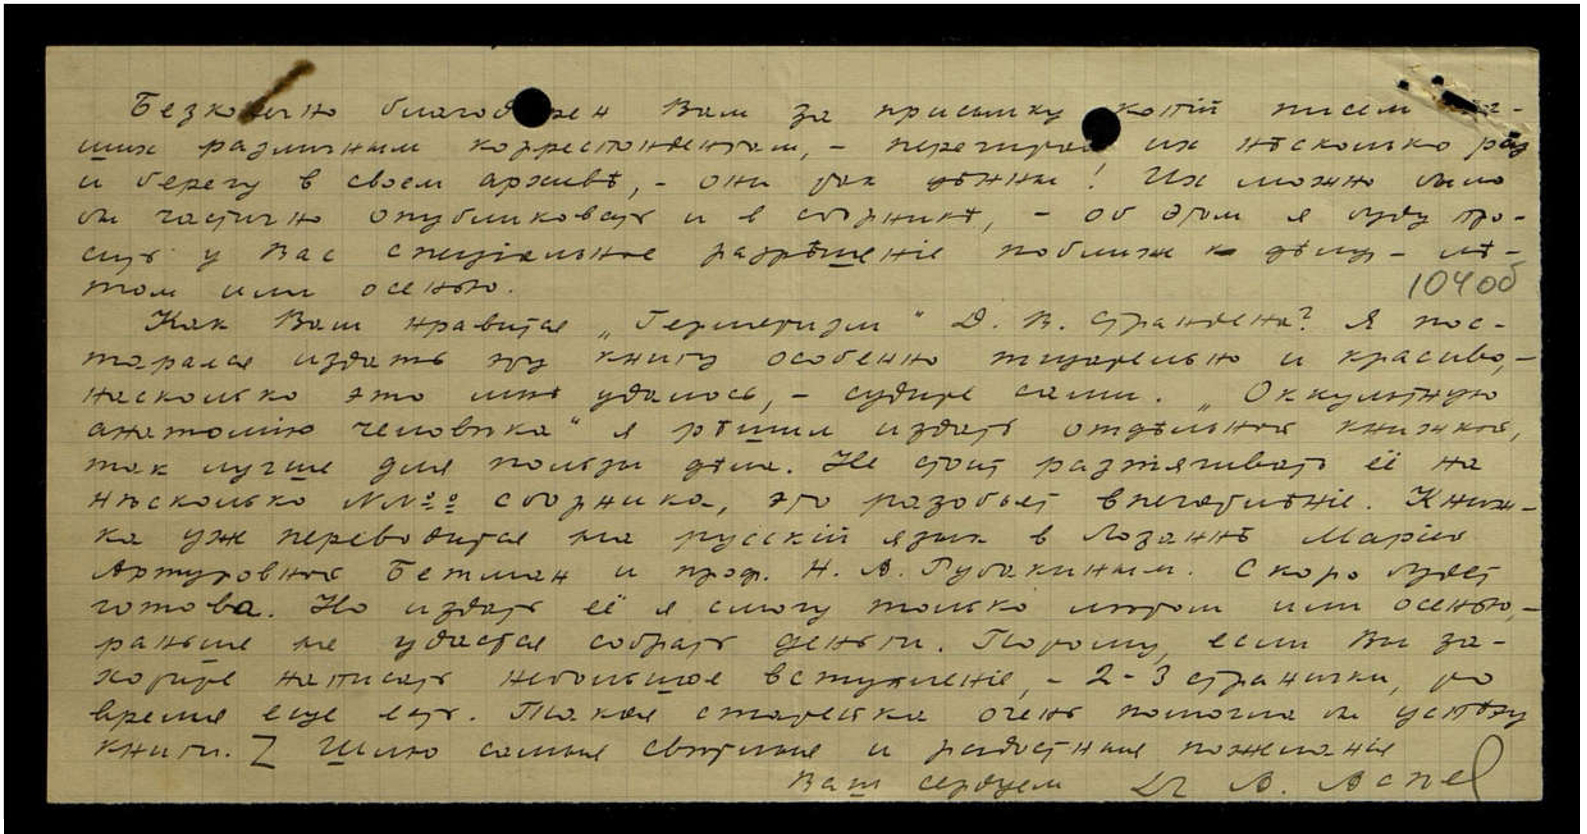 Безконечно благодарен Вам за присылку копій писем Ва-
ших различным корреспондентам, - перечитал их нѣсколько раз
и берегу в своем архивѣ, - они так цѣнны! Их можно было
бы частично опубликовать и в сборникѣ, - об этом я буду про-
сить у Вас спеціальное разрѣшеніе поближе к дѣлу - лѣ-
том или осенью.
104об
Как Вам нравится „Герметизм“ Д. В. Страндена? Я пос-
тарался издать эту книгу особенно тщательно и красиво, -
насколько это мнѣ удалось, - судите сами. „Оккультную
анатомію человѣка“ я рѣшил издать отдѣльной книжкой,
так лучше для пользы дѣла. Не стоит разтягивать её на
нѣсколько №№ сборника, это разобьет впечатлѣніе. Книж-
ка уже переводится на русскій язык в Лозаннѣ Маріей
Артуровной Бетман и проф. Н. А. Рубакиным. Скоро будет
готова. Но издать её я смогу только лѣтом или осенью, -
раньше не удастся собрать деньги. Потому, если Вы за-
хотите написать небольшое вступленіе, - 2-3 странички, то
время еще есть. Такая статейка очень помогла бы успѣху
книги. Z Шлю самые свѣтлые и радостные пожеланія
Ваш сердцем Dr А. Аспе